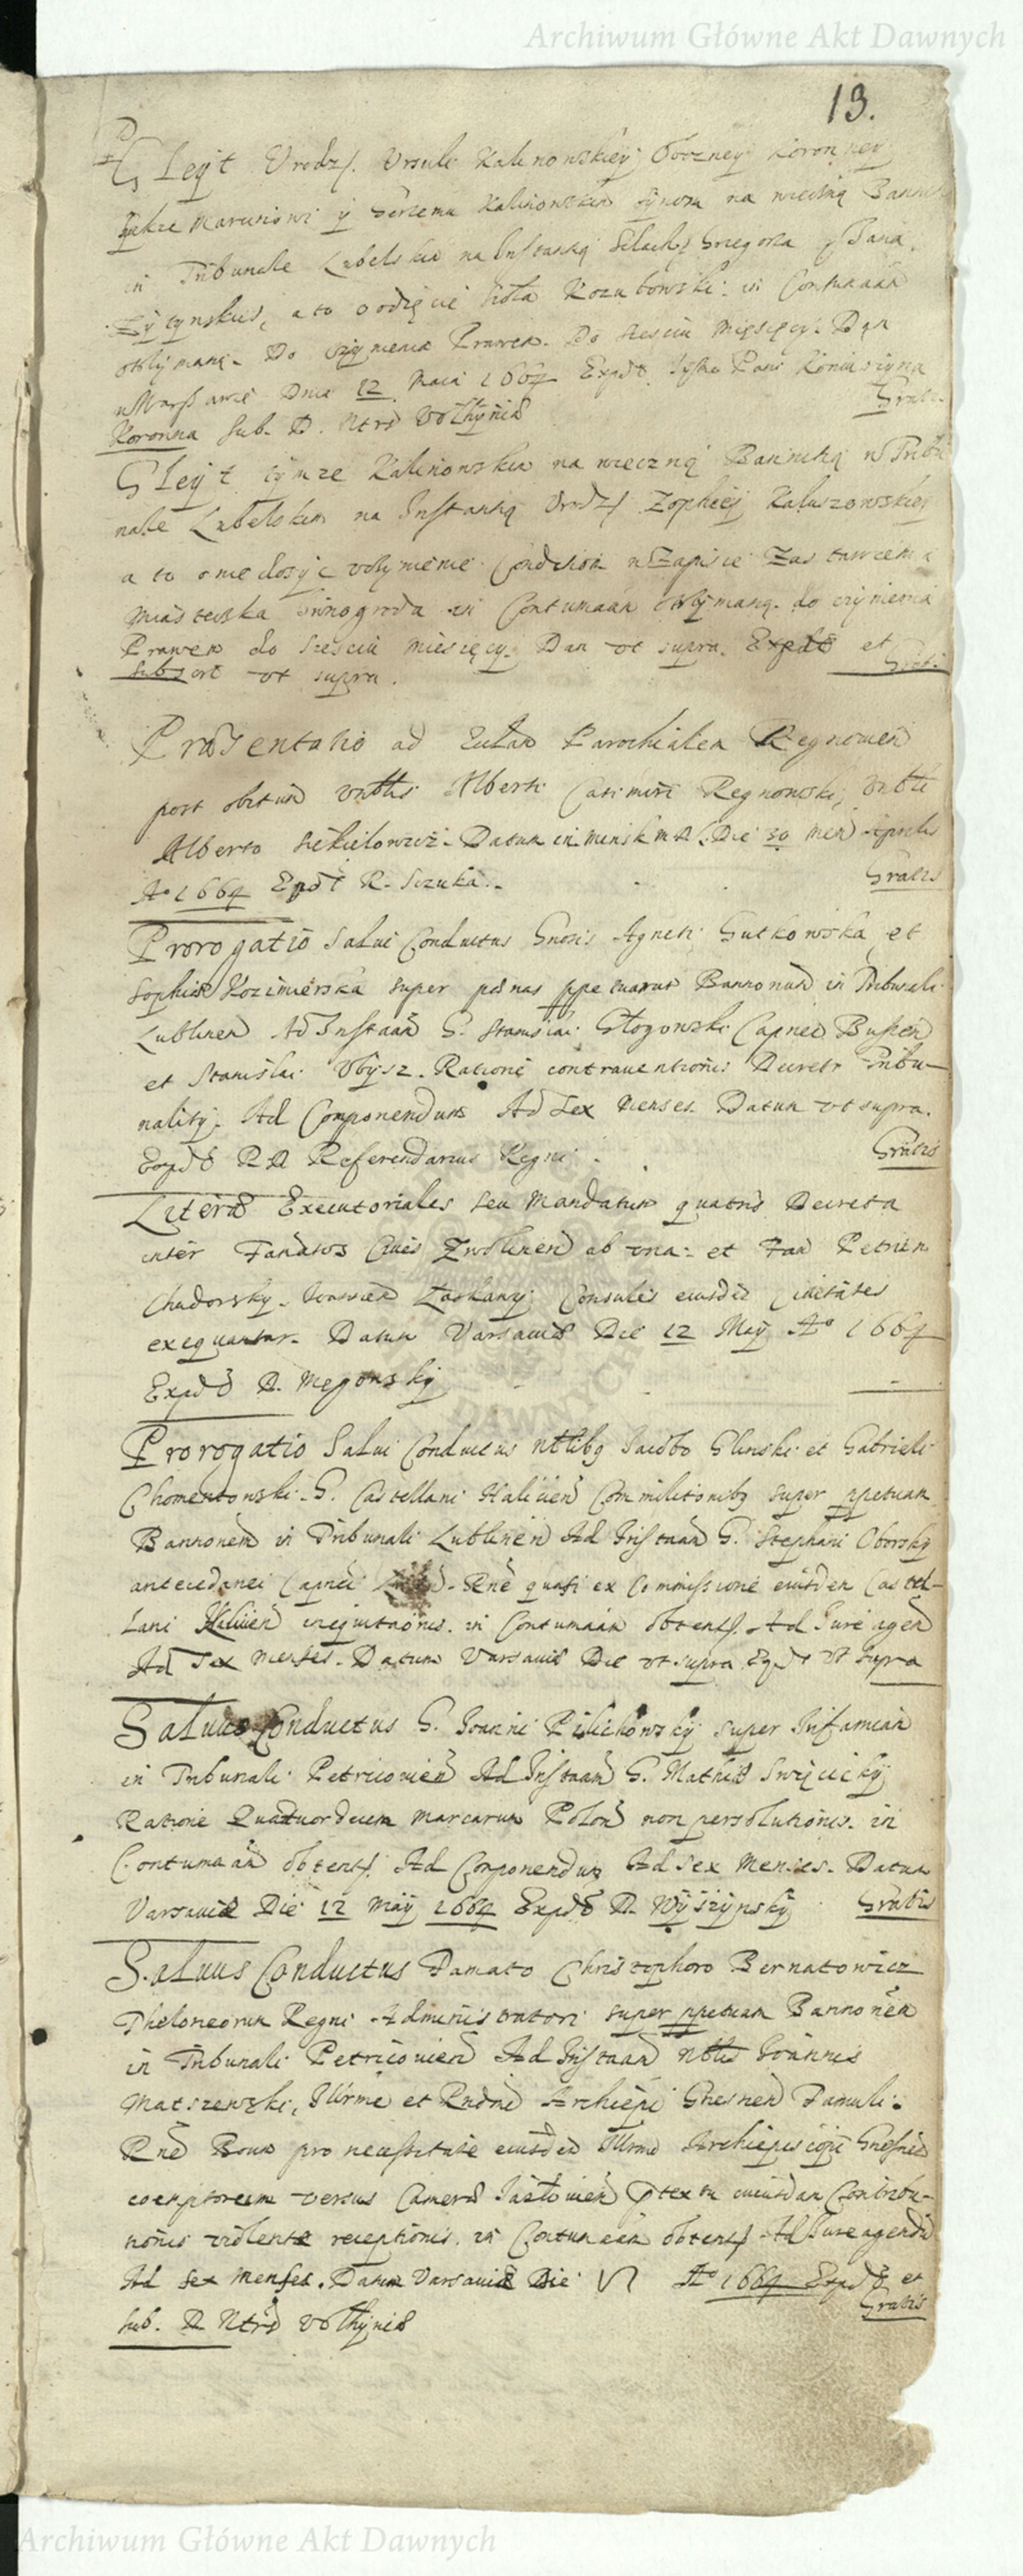 Archiwum Główne Akt Dawnych
13.
Gleyt Urodz. Ursuli Kalinowskiey Obozney Koronney
Także Marcinowi y Kalinowskim synom na wieczną
in Tribunale Lubelskim na Instantią Szlach. Grzegorza y Jana
a to o odięcie in Contumaam
otrzymaną. Do czynienia Prawem. Do sześciu Miesięcy. Dan
w Warszawie Dnia 12 Maia 1664 Expdt Pani Koniuszyna
Koronna Sub. D. Ntrs Volhyniae Gratis
Gleyt tymze Kalinowskim na wieczną Bannitią w Tribu
nale Lubelskim na Instantią Urodz Zophiey Kaluszowskiey
a to o niedosyć uczynienie Conditiom w Zapisie Zastawnem
Miasteczka Winogroda in Contumaam otrzymaną. do czynienia
Prawem do sześciu miesięcy. Dan ut supra. Expdt et
Subscrt ut supra. Grat.
Praesentatio ad Parochialem Regnowien
post obitum Vnblis Alberti Casimiri Regnowski, Vnbli
Alberto Siekielowicz. Datum in Minsk M. Die 30 Men Aprilis
Ao 1664 Expdt R. Sczuka. Gratis
Prorogatio Salui Conductus Gnosis Agneti Gutkowska et
Sophiae Kozimierska super paenas ppetuarum Bannonum in Tribunali
Lublinen Ad Instaam G. Stanislai Glogowski Capnei Buscen
et Stanislai Ubysz. Ratione contrauentionis Decreti Tribu-
nalitij. Ad Componendum Ad Sex Menses. Datum ut supra.
Expdt R D Referendarius Regni. Gratis
Literae Executoriales seu Mandatum quatns Decreta
inter Famatos Ciues Zwolinen ab una et Fam Petrum
Chudorsky. Consules eiusdem Ciuitatis
exequantur. Datum Varsauiae Die 12 Maij Ao 1664
Expdt D. Megonsky
Prorogatio Salui Conductus Nblibg Jacobo Glinski et Gabrieli
Chomentowski. G. Castellani Halicien Commilitonibg super ppetuam
Bannonem in Tribunali Lublinen Ad Instaam G. Stephani Oborsky
antecedanei Capnei Rne quasi ex Commissione eiusdem Castel-
lani Halicien inequitaonis. in Contumaam obtent. Ad Iure agend
Ad Sex Menses. Datum Varsauiae Die ut supra Expdt ut supra
Saluus Conductus G. Joanni Pilichowsky super Infamiam
in Tribunali Petricouien Ad Instaam G. Mathiae Swięcicky
Ratione Quatuordecim Marcarum Polon non persolutionis. in
Contumaam obtent. Ad Componendum Ad sex Menses. Datum
Varsauiae Die 12 Maij 1664 Expdt D. Wyszynsky Gratis
Saluus Conductus Famato Christophoro Bernatowicz
Theloneorum Regni Administratori super ppetuam Bannonem
in Tribunali Petricouien Ad Instaam Nblis Joannis
Matszewski, Illrme et Rndni Archiepi Gnesnen Famuli.
Rne Boum pro necessitate eiusdem Illrmi Archiepiscopi Gnesnen
coemptorum versus Camera Jastouien ptextu cuiusdam Contribu-
tionis violentae receptionis. in Contumaam obtent Ad Iure agendum
Ad sex Menses. Datum Varsauiae Die Vt Ao 1664 Expdt et
sub. D Ntrs Volhyniae Gratis
Archiwum Główne Akt Dawnych